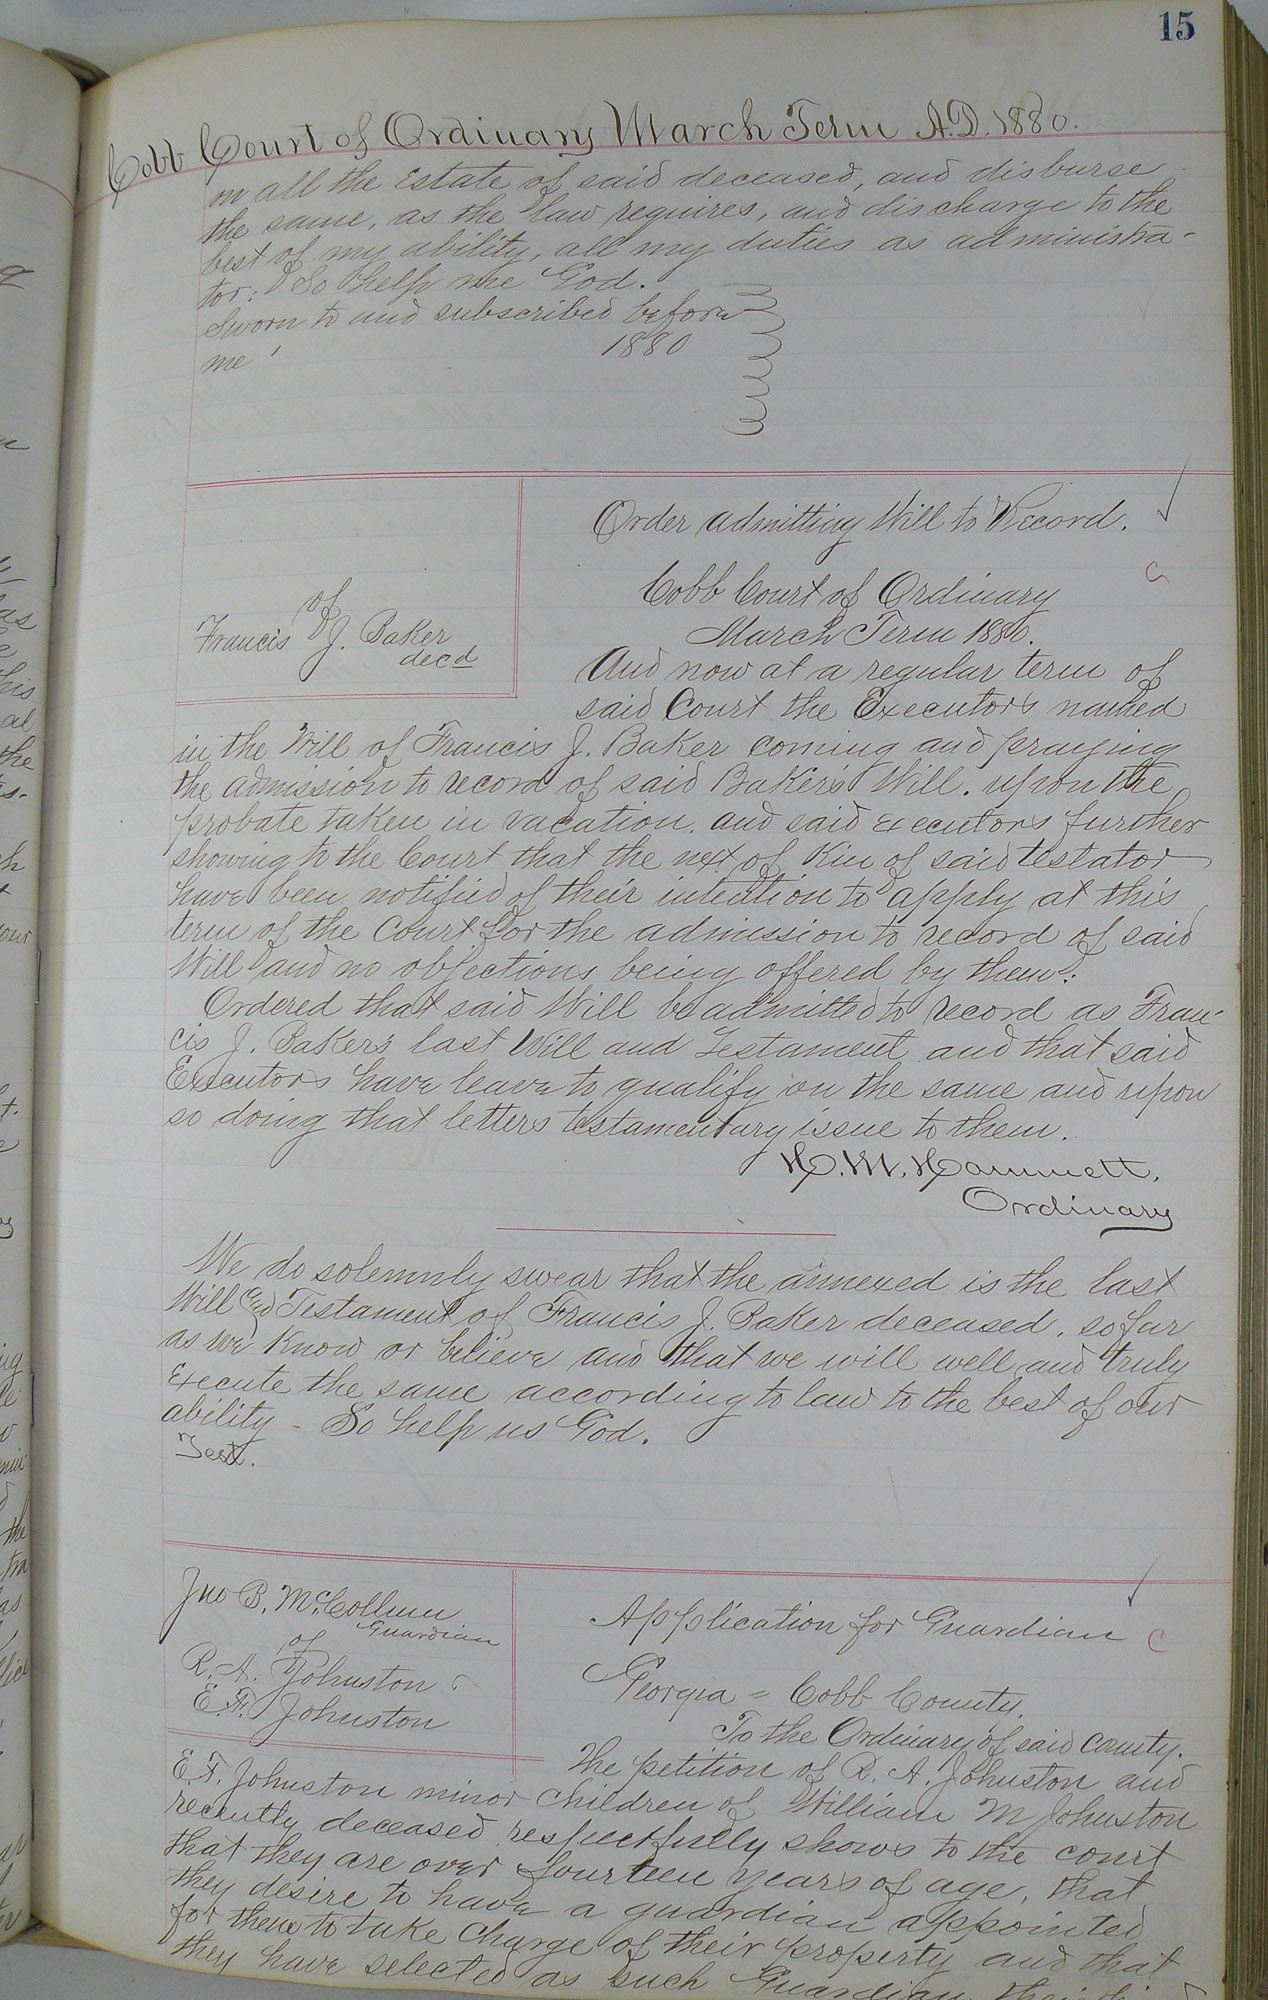 15
Cobb Court of Ordinary March Term A.D. 1880.
on all the Estate of said deceased, and disburse
the same, as the law requires, and discharge to the
best of my ability, all my duties as administra-
tor: So help me God.
Sworn to and subscribed before
me 1880
Order admitting Will to Record.
Cobb Court of Ordinary
March Term 1880.
of
Francis J. Baker
decd
And now at a regular term of
said Court the Executors named
in the Will of Francis J. Baker coming and praying
the admission to record of said Baker's Will. upon the
probate taken in vacation. and said executors further
showing to the Court that the next of Kin of said testator
have been notified of their intention to apply at this
term of the Court for the admission to record of said
Will and no objections being offered by them:
Ordered that said Will be admitted to record as Fran-
cis J. Bakers last Will and Testament and that said
Executors have leave to qualify on the same and upon
so doing that letters testamentary issue to them.
H. M. Hammett.
Ordinary
We do solemnly swear that the annexed is the last
Will and Testament of Francis J. Baker deceased. so far
as we Know or believe and that we will well and truly
Execute the same according to law to the best of our
ability - So help us God.
Test.
Jno B. McCollum
Guardian
of
R. A. Johnston
E. F. Johnston
Application for Guardian
Georgia = Cobb County.
To the Ordinary of said County.
The petition of R. A. Johnston and
E. F. Johnston minor Children of William M Johnston
recently deceased respectfully shows to the court
that they are over fourteen years of age, that
they desire to have a guardian appointed
for them to take Charge of their property and that
they have selected as such Guardian their